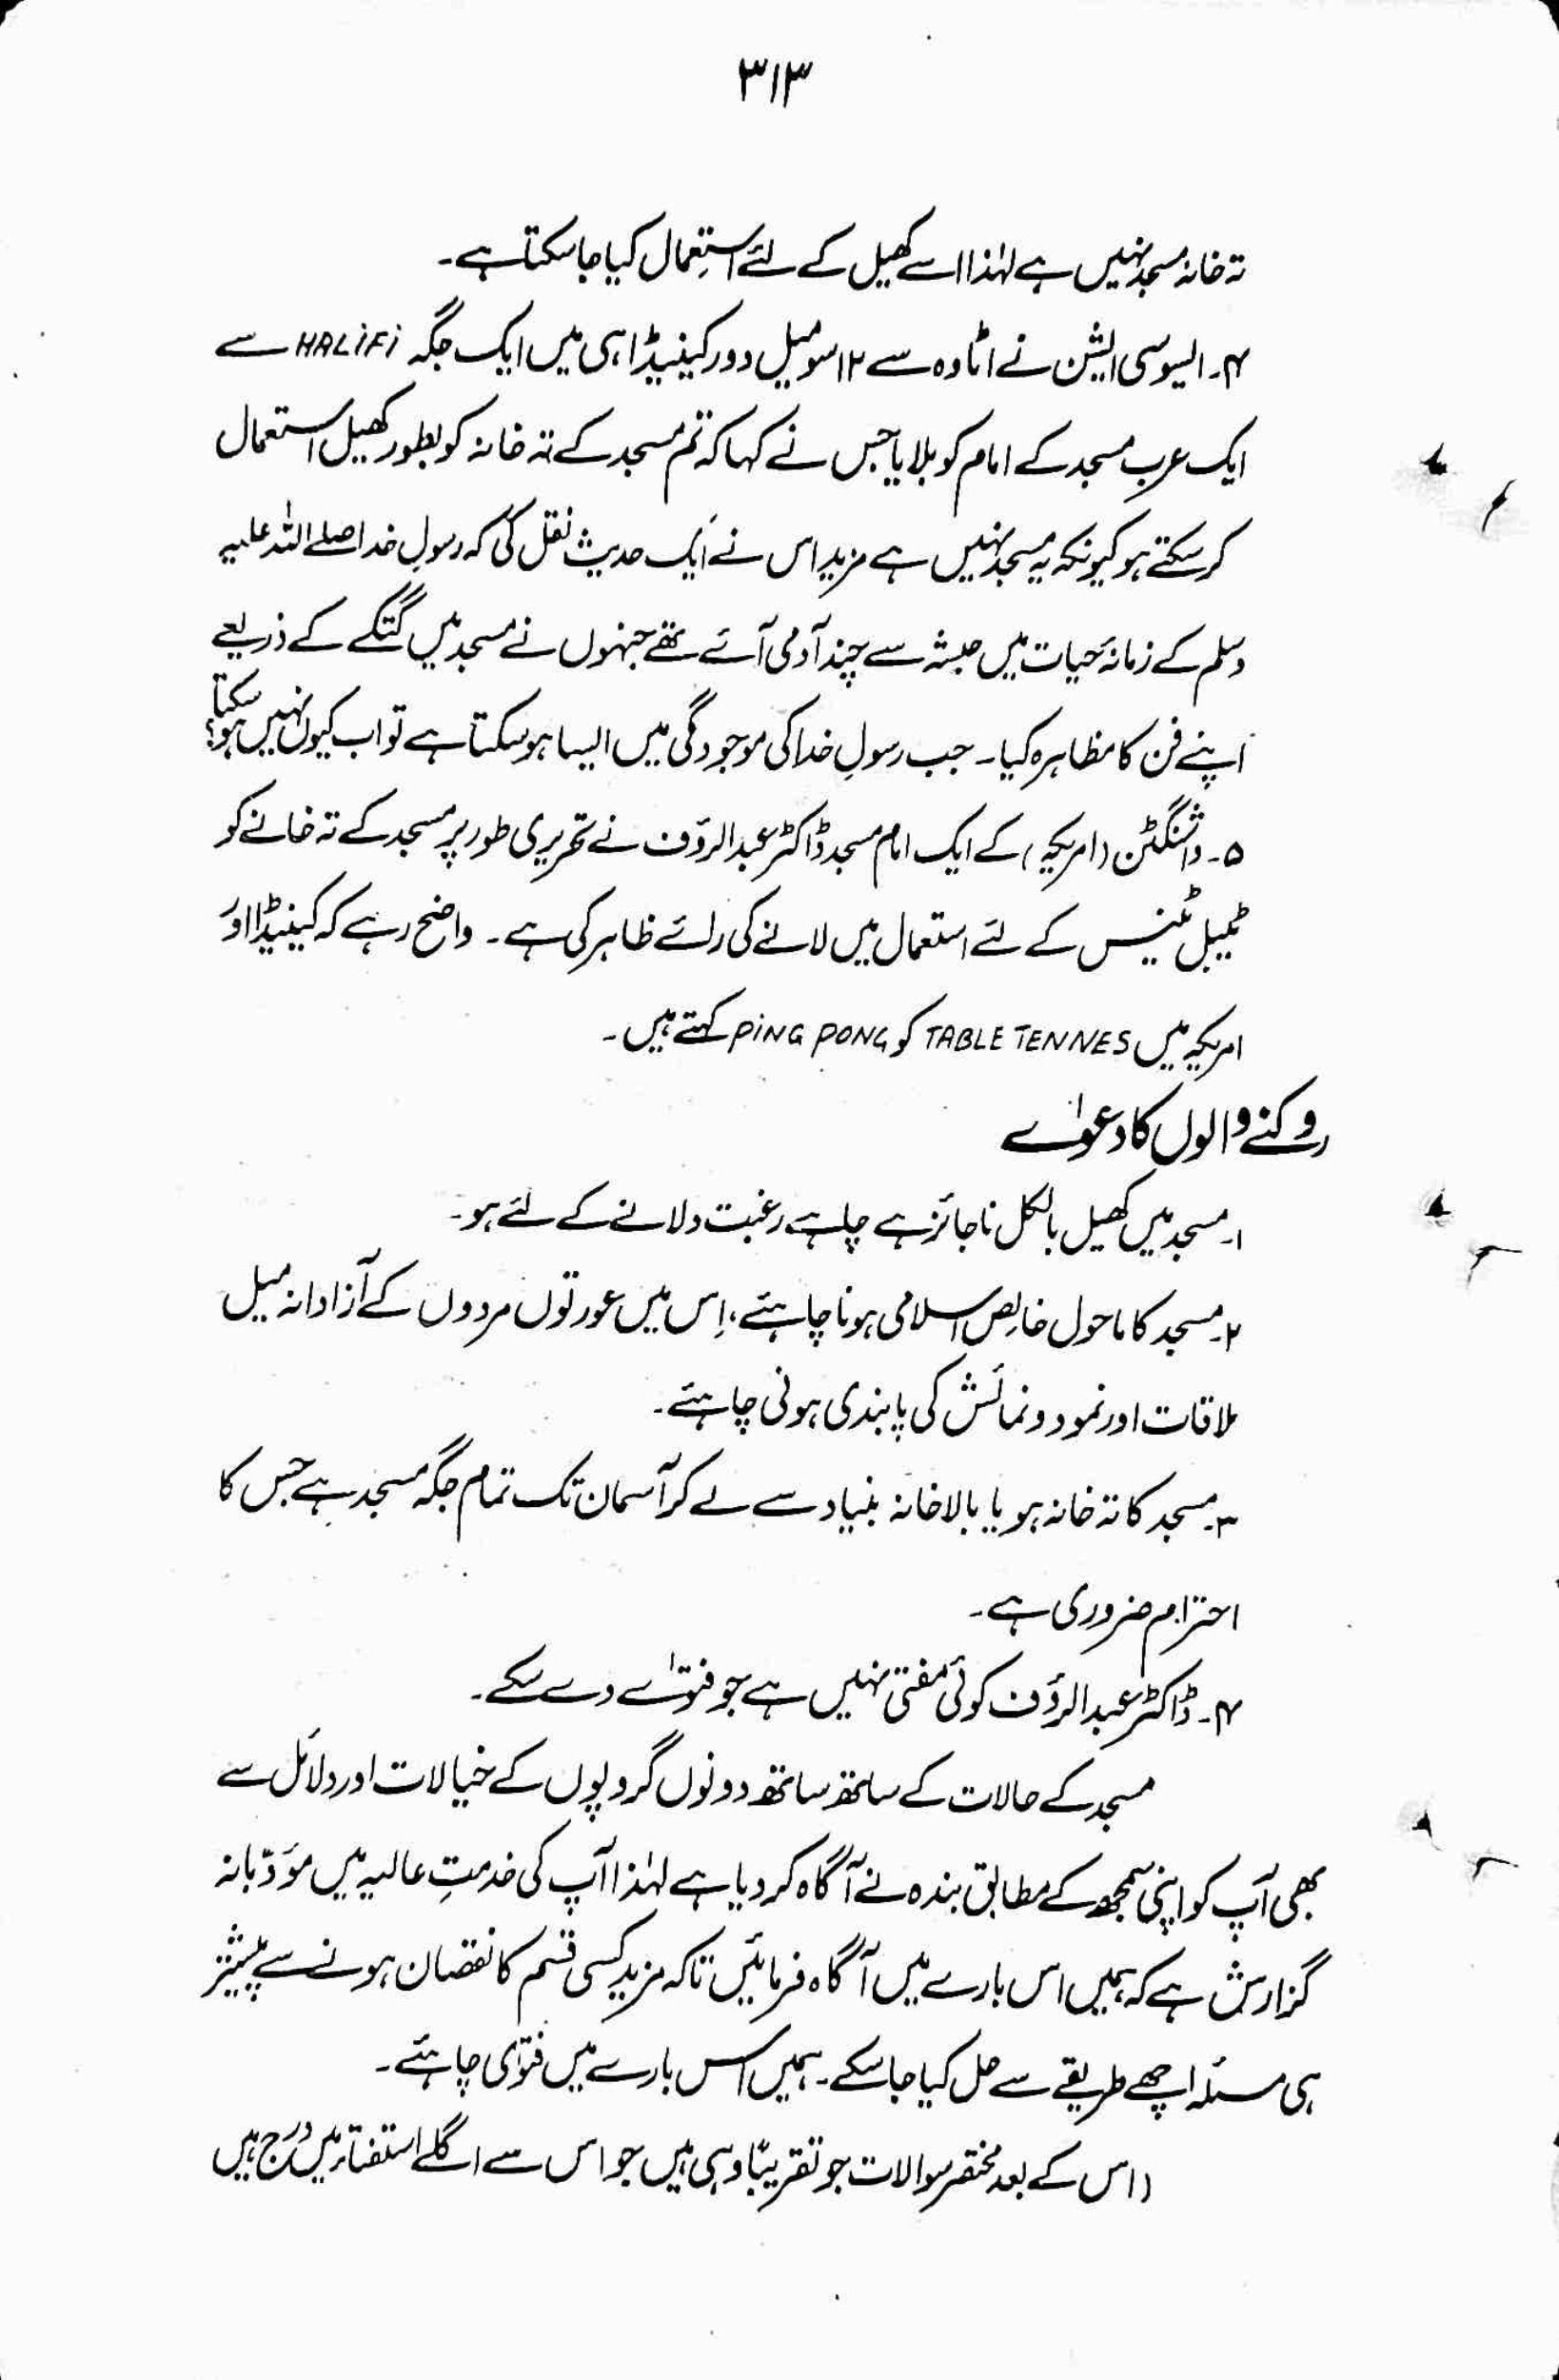 ۳۱۳
تہ خانہ مسجد نہیں ہے لہٰذا اسے کھیل کے لئے استعمال کیا جا سکتا ہے۔
۴۔ ایسوسی ایشن نے اٹاوہ سے ۱۲ سو میل دور کینیڈا ہی میں ایک جگہ HALiFi سے
ایک عرب مسجد کے امام کو بلایا جس نے کہا کہ تم مسجد کے تہ خانہ کو بطور کھیل استعمال
کر سکتے ہو کیونکہ یہ مسجد نہیں ہے مزید اس نے ایک حدیث نقل کی کہ رسولِ خدا صلے اللہ علیہ
وسلم کے زمانۂ حیات میں حبشہ سے چند آدمی آئے تھے جنہوں نے مسجد میں گتکے کے ذریعے
اپنے فن کا مظاہرہ کیا۔ جب رسولِ خدا کی موجودگی میں ایسا ہو سکتا ہے تو اب کیوں نہیں ہو سکتا؟
۵۔ واشنگٹن (امریکہ) کے ایک امام مسجد ڈاکٹر عبدالرؤف نے تحریری طور پر مسجد کے تہ خانے کو
ٹیبل ٹینس کے لئے استعمال میں لانے کی رائے ظاہر کی ہے۔ واضح رہے کہ کینیڈا اور
امریکہ میں TABLE TENNES کو PiNG PONG کہتے ہیں۔
روکنے والوں کا دعوٰے
۱۔ مسجد میں کھیل بالکل ناجائز ہے چاہے رغبت دلانے کے لئے ہو۔
۲۔ مسجد کا ماحول خالص اسلامی ہونا چاہئے، اِس میں عورتوں مردوں کے آزادانہ میل
ملاقات اور نمود و نمائش کی پابندی ہونی چاہئے۔
۳۔ مسجد کا تہ خانہ ہو یا بالا خانہ بنیاد سے لے کر آسمان تک تمام جگہ مسجد ہے جس کا
احترام ضروری ہے۔
۴۔ ڈاکٹر عبدالرؤف کوئی مفتی نہیں ہے جو فتوٰے دے سکے۔
مسجد کے حالات کے ساتھ ساتھ دونوں گروپوں کے خیالات اور دلائل سے
بھی آپ کو اپنی سمجھ کے مطابق بندہ نے آگاہ کر دیا ہے لہٰذا آپ کی خدمتِ عالیہ میں مؤدّبانہ
گزارش ہے کہ ہمیں اس بارے میں آگاہ فرمائیں تاکہ مزید کسی قسم کا نقصان ہونے سے پیشتر
ہی مسئلہ اچھے طریقے سے حل کیا جا سکے۔ ہمیں اس بارے میں فتوٰی چاہئے۔
(اس کے بعد مختصر سوالات جو تقریبًا وہی ہیں جو اس سے اگلے استفتاء میں درج ہیں